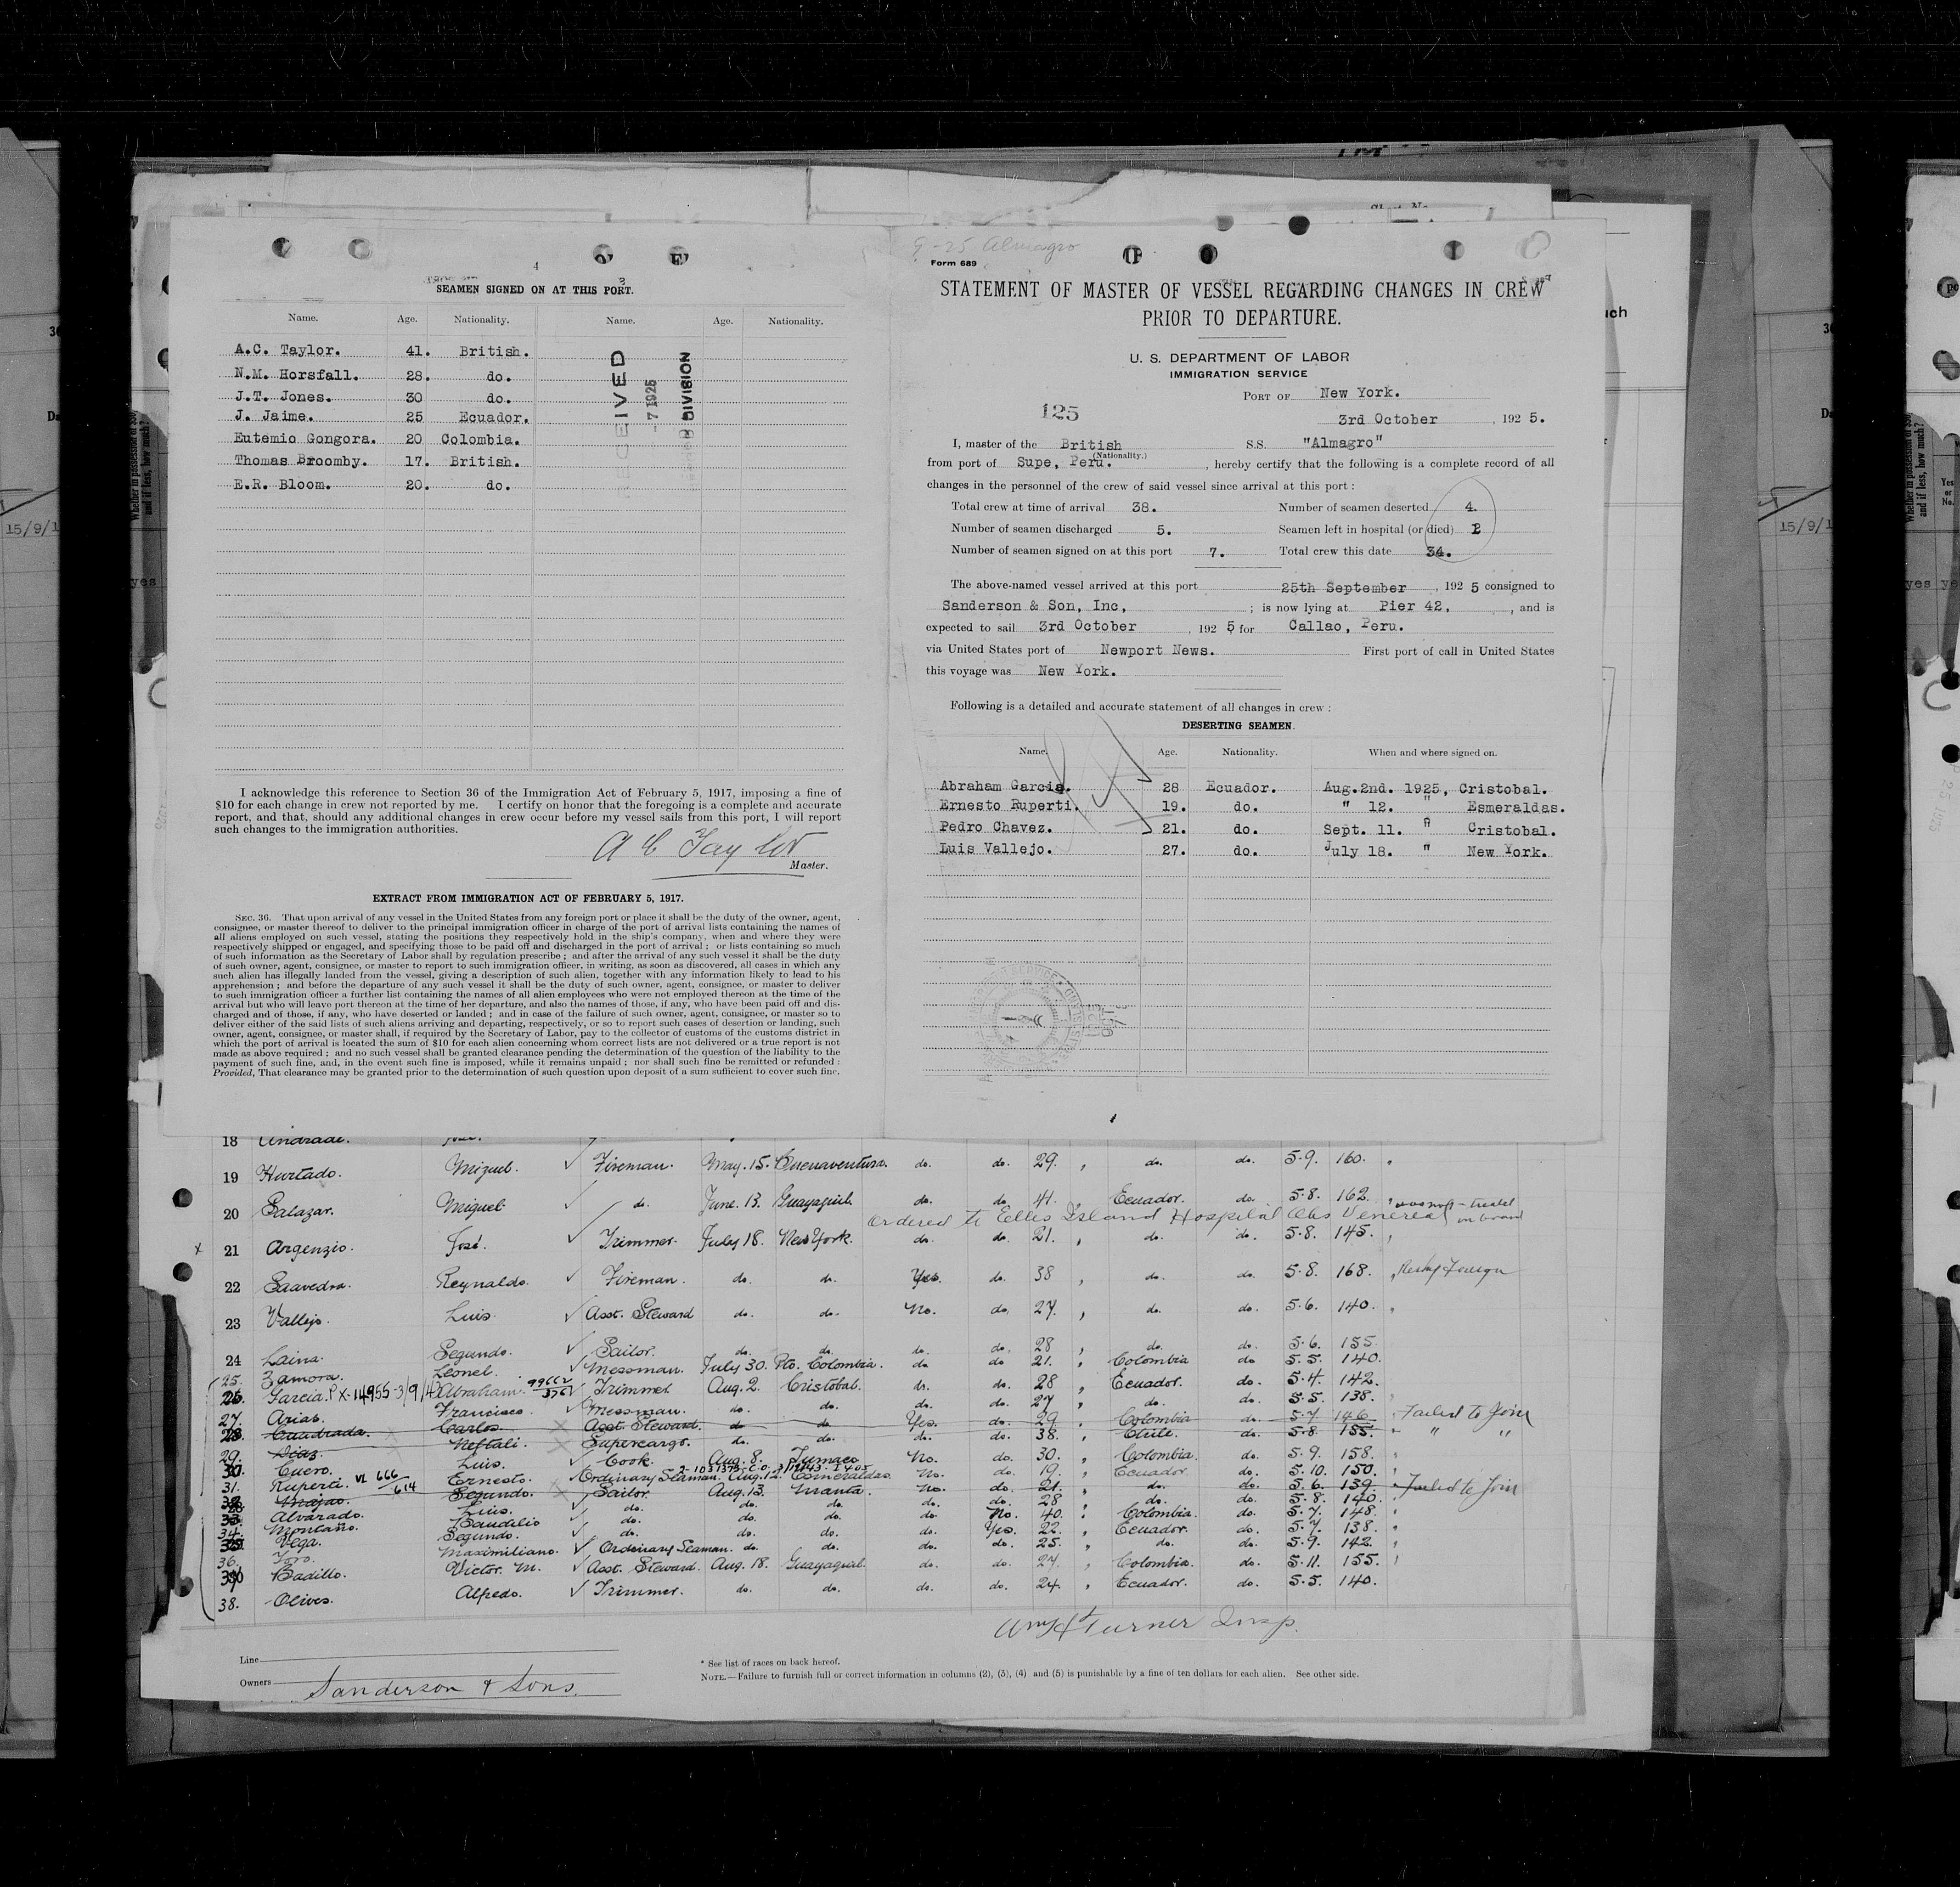 SEAMEN SIGNED ON AT THIS PORT.
Name. Age. Nationality. Name. Age. Nationality.
A.C. Taylor. 41. British.
N.M. Horsfall. 28. do.
J.T. Jones. 30 do.
J. Jaime. 25 Ecuador.
Eutemio Gongora. 20 Colombia.
Thomas Broomby. 17. British.
E.R. Bloom. 20. do.
RECEIVED
- 7 1925
DIVISION
I acknowledge this reference to Section 36 of the Immigration Act of February 5, 1917, imposing a fine of
$10 for each change in crew not reported by me. I certify on honor that the foregoing is a complete and accurate
report, and that, should any additional changes in crew occur before my vessel sails from this port, I will report
such changes to the immigration authorities.
A C Taylor
Master.
EXTRACT FROM IMMIGRATION ACT OF FEBRUARY 5, 1917.
SEC. 36. That upon arrival of any vessel in the United States from any foreign port or place it shall be the duty of the owner, agent,
consignee, or master thereof to deliver to the principal immigration officer in charge of the port of arrival lists containing the names of
all aliens employed on such vessel, stating the positions they respectively hold in the ship's company, when and where they were
respectively shipped or engaged, and specifying those to be paid off and discharged in the port of arrival ; or lists containing so much
of such information as the Secretary of Labor shall by regulation prescribe ; and after the arrival of any such vessel it shall be the duty
of such owner, agent, consignee, or master to report to such immigration officer, in writing, as soon as discovered, all cases in which any
such alien has illegally landed from the vessel, giving a description of such alien, together with any information likely to lead to his
apprehension ; and before the departure of any such vessel it shall be the duty of such owner, agent, consignee, or master to deliver
to such immigration officer a further list containing the names of all alien employees who were not employed thereon at the time of the
arrival but who will leave port thereon at the time of her departure, and also the names of those, if any, who have been paid off and dis-
charged and of those, if any, who have deserted or landed ; and in case of the failure of such owner, agent, consignee, or master so to
deliver either of the said lists of such aliens arriving and departing, respectively, or so to report such cases of desertion or landing, such
owner, agent, consignee, or master shall, if required by the Secretary of Labor, pay to the collector of customs of the customs district in
which the port of arrival is located the sum of $10 for each alien concerning whom correct lists are not delivered or a true report is not
made as above required ; and no such vessel shall be granted clearance pending the determination of the question of the liability to the
payment of such fine, and, in the event such fine is imposed, while it remains unpaid ; nor shall such fine be remitted or refunded :
Provided, That clearance may be granted prior to the determination of such question upon deposit of a sum sufficient to cover such fine.
9-25 Almagro
Form 689
STATEMENT OF MASTER OF VESSEL REGARDING CHANGES IN CREW
PRIOR TO DEPARTURE.
U. S. DEPARTMENT OF LABOR
IMMIGRATION SERVICE
PORT OF New York.
125
3rd October , 192 5.
I, master of the British S.S. "Almagro"
(Nationality.)
from port of Supe, Peru. , hereby certify that the following is a complete record of all
changes in the personnel of the crew of said vessel since arrival at this port :
Total crew at time of arrival 38. Number of seamen deserted 4.
Number of seamen discharged 5. Seamen left in hospital (or died)
Number of seamen signed on at this port 7. Total crew this date 34.
The above-named vessel arrived at this port 25th September , 192 5 consigned to
Sanderson & Son, Inc, ; is now lying at Pier 42, , and is
expected to sail 3rd October , 192 5 for Callao, Peru.
via United States port of Newport News. First port of call in United States
this voyage was New York.
Following is a detailed and accurate statement of all changes in crew :
DESERTING SEAMEN.
Name. Age. Nationality. When and where signed on.
Abraham Garcia. 28 Ecuador. Aug.2nd. 1925, Cristobal.
Ernesto Ruperti. 19. do. " 12. " Esmeraldas.
Pedro Chavez. 21. do. Sept. 11. " Cristobal.
Luis Vallejo. 27. do. July 18. " New York.
18 Andrade.
19 Hurtado. Miguel. Fireman. May. 15. Buenaventura. do. do. 29. do. do. 5-9. 160.
20 Salazar. Miguel. do. June. 13. Guayaquil. do. do 41. Ecuador. do. 5-8. 162.
Ordered to Ellis Island Hospital Obs Venereal
21 Argenzio. José. Trimmer. July 18. New York. do. do. 21. do. do. 5-8. 145.
22 Saavedra. Reynaldo. Fireman. do. do. Yes. do. 38 do. do. 5-8. 168.
23 Vallejo. Luis. Asst. Steward do. do. No. do. 27. do. do. 5-6. 140.
24 Laina. Segundo. Sailor. do. do. do. do. 28 do. do. 5-6. 155.
25. Zamora. Leonel. Messman. July 30. Pto. Colombia. do do 21. Colombia do 5-5. 140.
26. Garcia. Abraham. Trimmer Aug. 2. Cristobal. do. do. 28 Ecuador. do. 5-4. 142.
27. Arias. Francisco. Messman. do. do. do. do. 27 do. do. 5-5. 138.
28 Cuadrada. Carlos Asst. Steward. do do. Yes. do. 29. Colombia do. 5-7 146 Failed to Join
29. Diaz. Neftali. Supercargo. do. do. do. do. 38. Chile. do. 5-8 155. " "
30 Cuero. Luis. Cook. Aug. 8. Tumaco No. do. 30. Colombia. do. 5-9. 158.
31. Ruperti. Ernesto. Ordinary Seaman. Aug. 12. Esmeraldas. No. do. 19. Ecuador do. 5-10. 150.
Segundo. Sailor. Aug. 13. Manta. No. do. 21. do. do. 5-6. 139. Failed to Join
33. Alvarado. Luis. do. do. do. do. do. 28 do. do. 5-8. 140.
34. Montaño. Baudilio do. do. do. do. No. 40. Colombia. do. 5-7. 148.
35. Vega. Segundo. do. do. do. do. Yes. 22. Ecuador. do. 5-7. 138.
36. Toro. Maximiliano. Ordinary Seaman. do. do. do. do. 25. do. do. 5-9. 142.
37 Badillo. Victor. M. Asst. Steward. Aug. 18. Guayaquil. do. do. 27. Colombia. do. 5-11. 155.
38. Olives. Alfredo. Trimmer. do. do. do. do. 24. Ecuador. do. 5-5. 140.
Turner Insp.
Line
* See list of races on back hereof.
Owners Sanderson & Sons.
NOTE.—Failure to furnish full or correct information in columns (2), (3), (4) and (5) is punishable by a fine of ten dollars for each alien. See other side.